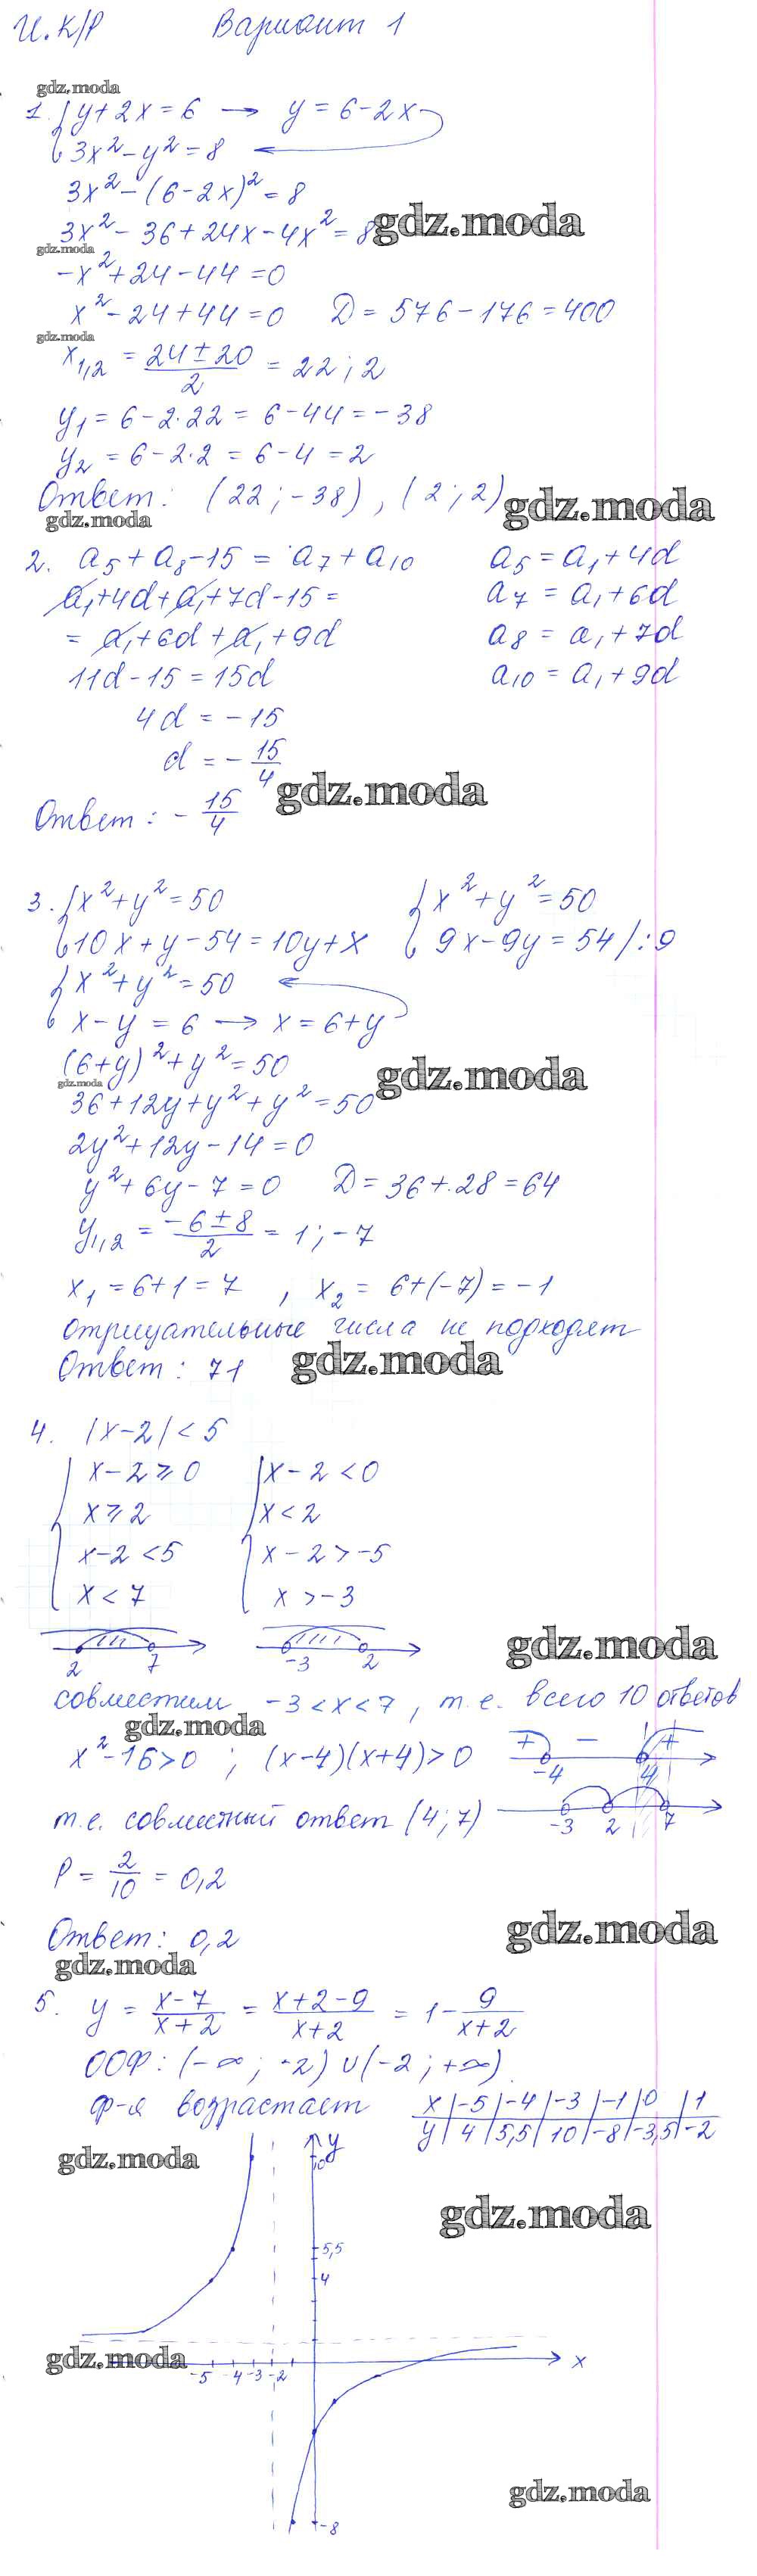 И.К/Р Вариант 1
gdz.moda
1. { y + 2x = 6 → y = 6 - 2x
3x² - y² = 8
3x² - (6 - 2x)² = 8
3x² - 36 + 24x - 4x² = 8 gdz.moda
gdz.moda
-x² + 24 - 44 = 0
x² - 24 + 44 = 0 D = 576 - 176 = 400
gdz.moda
x₁,₂ = (24 ± 20)/2 = 22; 2
y₁ = 6 - 2·22 = 6 - 44 = -38
y₂ = 6 - 2·2 = 6 - 4 = 2
Ответ: (22; -38), (2; 2) gdz.moda
gdz.moda
2. a₅ + a₈ - 15 = a₇ + a₁₀ a₅ = a₁ + 4d
a₁ + 4d + a₁ + 7d - 15 = a₇ = a₁ + 6d
= a₁ + 6d + a₁ + 9d a₈ = a₁ + 7d
11d - 15 = 15d a₁₀ = a₁ + 9d
4d = -15
d = -15/4 gdz.moda
Ответ: -15/4
3. { x² + y² = 50 { x² + y² = 50
10x + y - 54 = 10y + x 9x - 9y = 54 /:9
{ x² + y² = 50
x - y = 6 → x = 6 + y
(6 + y)² + y² = 50
gdz.moda gdz.moda
36 + 12y + y² + y² = 50
2y² + 12y - 14 = 0
y² + 6y - 7 = 0 D = 36 + 28 = 64
y₁,₂ = (-6 ± 8)/2 = 1; -7
x₁ = 6 + 1 = 7 , x₂ = 6 + (-7) = -1
отрицательные числа не подходят
Ответ: 71 gdz.moda
4. |x - 2| < 5
{ x - 2 ≥ 0 { x - 2 < 0
x ≥ 2 x < 2
x - 2 < 5 x - 2 > -5
x < 7 x > -3
gdz.moda
2 7 -3 2
совместим -3 < x < 7, т.е. всего 10 ответов
gdz.moda
x² - 16 > 0 ; (x - 4)(x + 4) > 0 + - +
-4 4
т.е. совместный ответ (4; 7) -3 2 7
P = 2/10 = 0,2
Ответ: 0,2 gdz.moda
gdz.moda
5. y = (x - 7)/(x + 2) = (x + 2 - 9)/(x + 2) = 1 - 9/(x + 2)
ООФ: (-∞; -2) ∪ (-2; +∞)
ф-я возрастает x | -5 | -4 | -3 | -1 | 0 | 1
y | 4 | 5,5 | 10 | -8 | -3,5 | -2
y
gdz.moda 10
gdz.moda
5,5
4
gdz.moda x
-5 -4 -3 -2
gdz.moda
-8